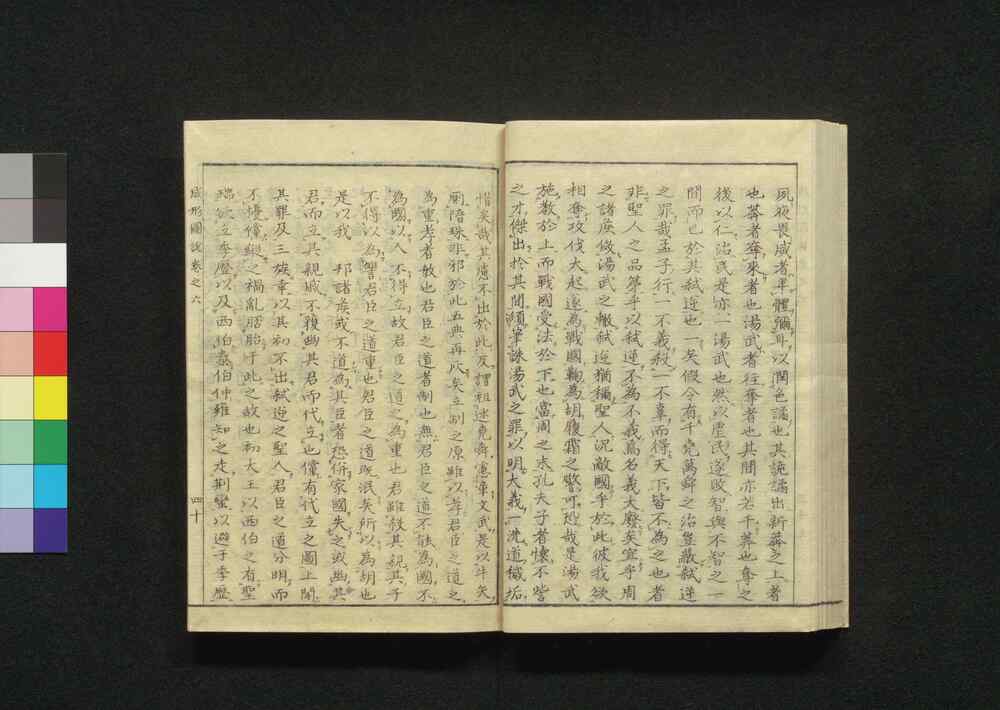 夙夜畏威者卑體彌耳以潤色譎也其詭譎出新莽之上者
也莽者奪來者也湯武者往奪者也其間亦若干莽也奪之
後以仁治民是亦一湯武也然以塵民遂敗智與不智之一
間而已於其弑逆也一矣假令有千堯萬舜之治豈蔽弑逆
之罪哉孟子行一不義殺一不辜而得天下皆不為之也者
非聖人之品第乎以弑逆不為不義為名義大廢矣宜乎周
之諸侯倣湯武之轍弑逆猶稱聖人況敵國乎於此彼我欲
相奪攻伐大起遂為戰國鞠為胡履霜之戒可恐哉是湯武
施教於上而戰國受法於下也當周之末孔夫子者懷不世
之才傑出於其間瀕筆誅湯武之罪以明大義一洗道穢垢
惜矣哉其慮不出於此反謂祖述堯舜憲章文武是以斗矢
罔陪殊非邪於此五典再灰矣立制之原雖以孝君臣之道之
為重孝者放也君臣之道者制也無君臣之道不能為國不
為國以人不得立故君臣之道之為重也君雖殺其親其子
不得以為讐君臣之道重也君臣之道既泯矣所以為胡也
是以我 邦諸侯或不道為其臣者恐併家國失之或幽其
君而立其親戚不復幽其君而代立也儻有代立之圖上開
其罪及三族幸以其初不出弑逆之聖人君臣之道分明而
不擾儻縦之禍亂胚胎于此之故也初大王以西伯之有聖
瑞欲立季歷以及西伯泰伯仲雍知之走荊蠻以避于季歷
成形圖説卷之六
四十